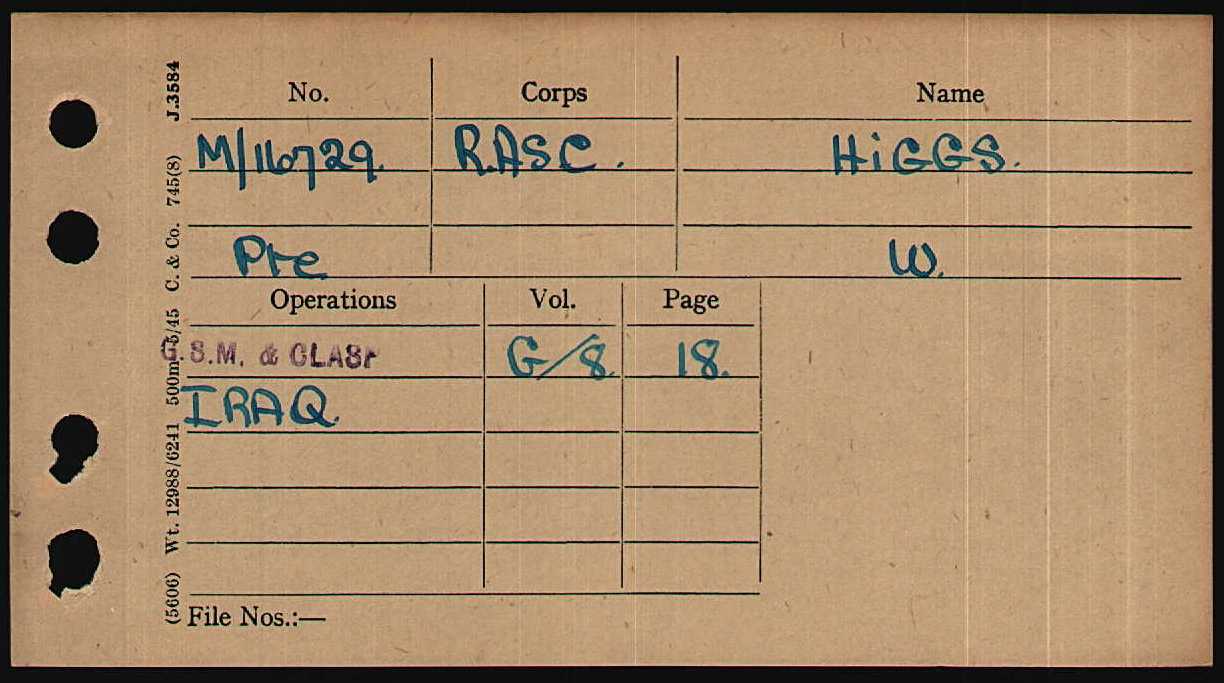 No. Corps Name
M/16729. R.ASC. HiGGS.
Pte W.
Operations Vol. Page
G.S.M. & CLASP G/8. 18.
IRAQ.
File Nos.:—
(5606) Wt. 12988/6241 500m 5/45 C. & Co. 745(8) J.3584